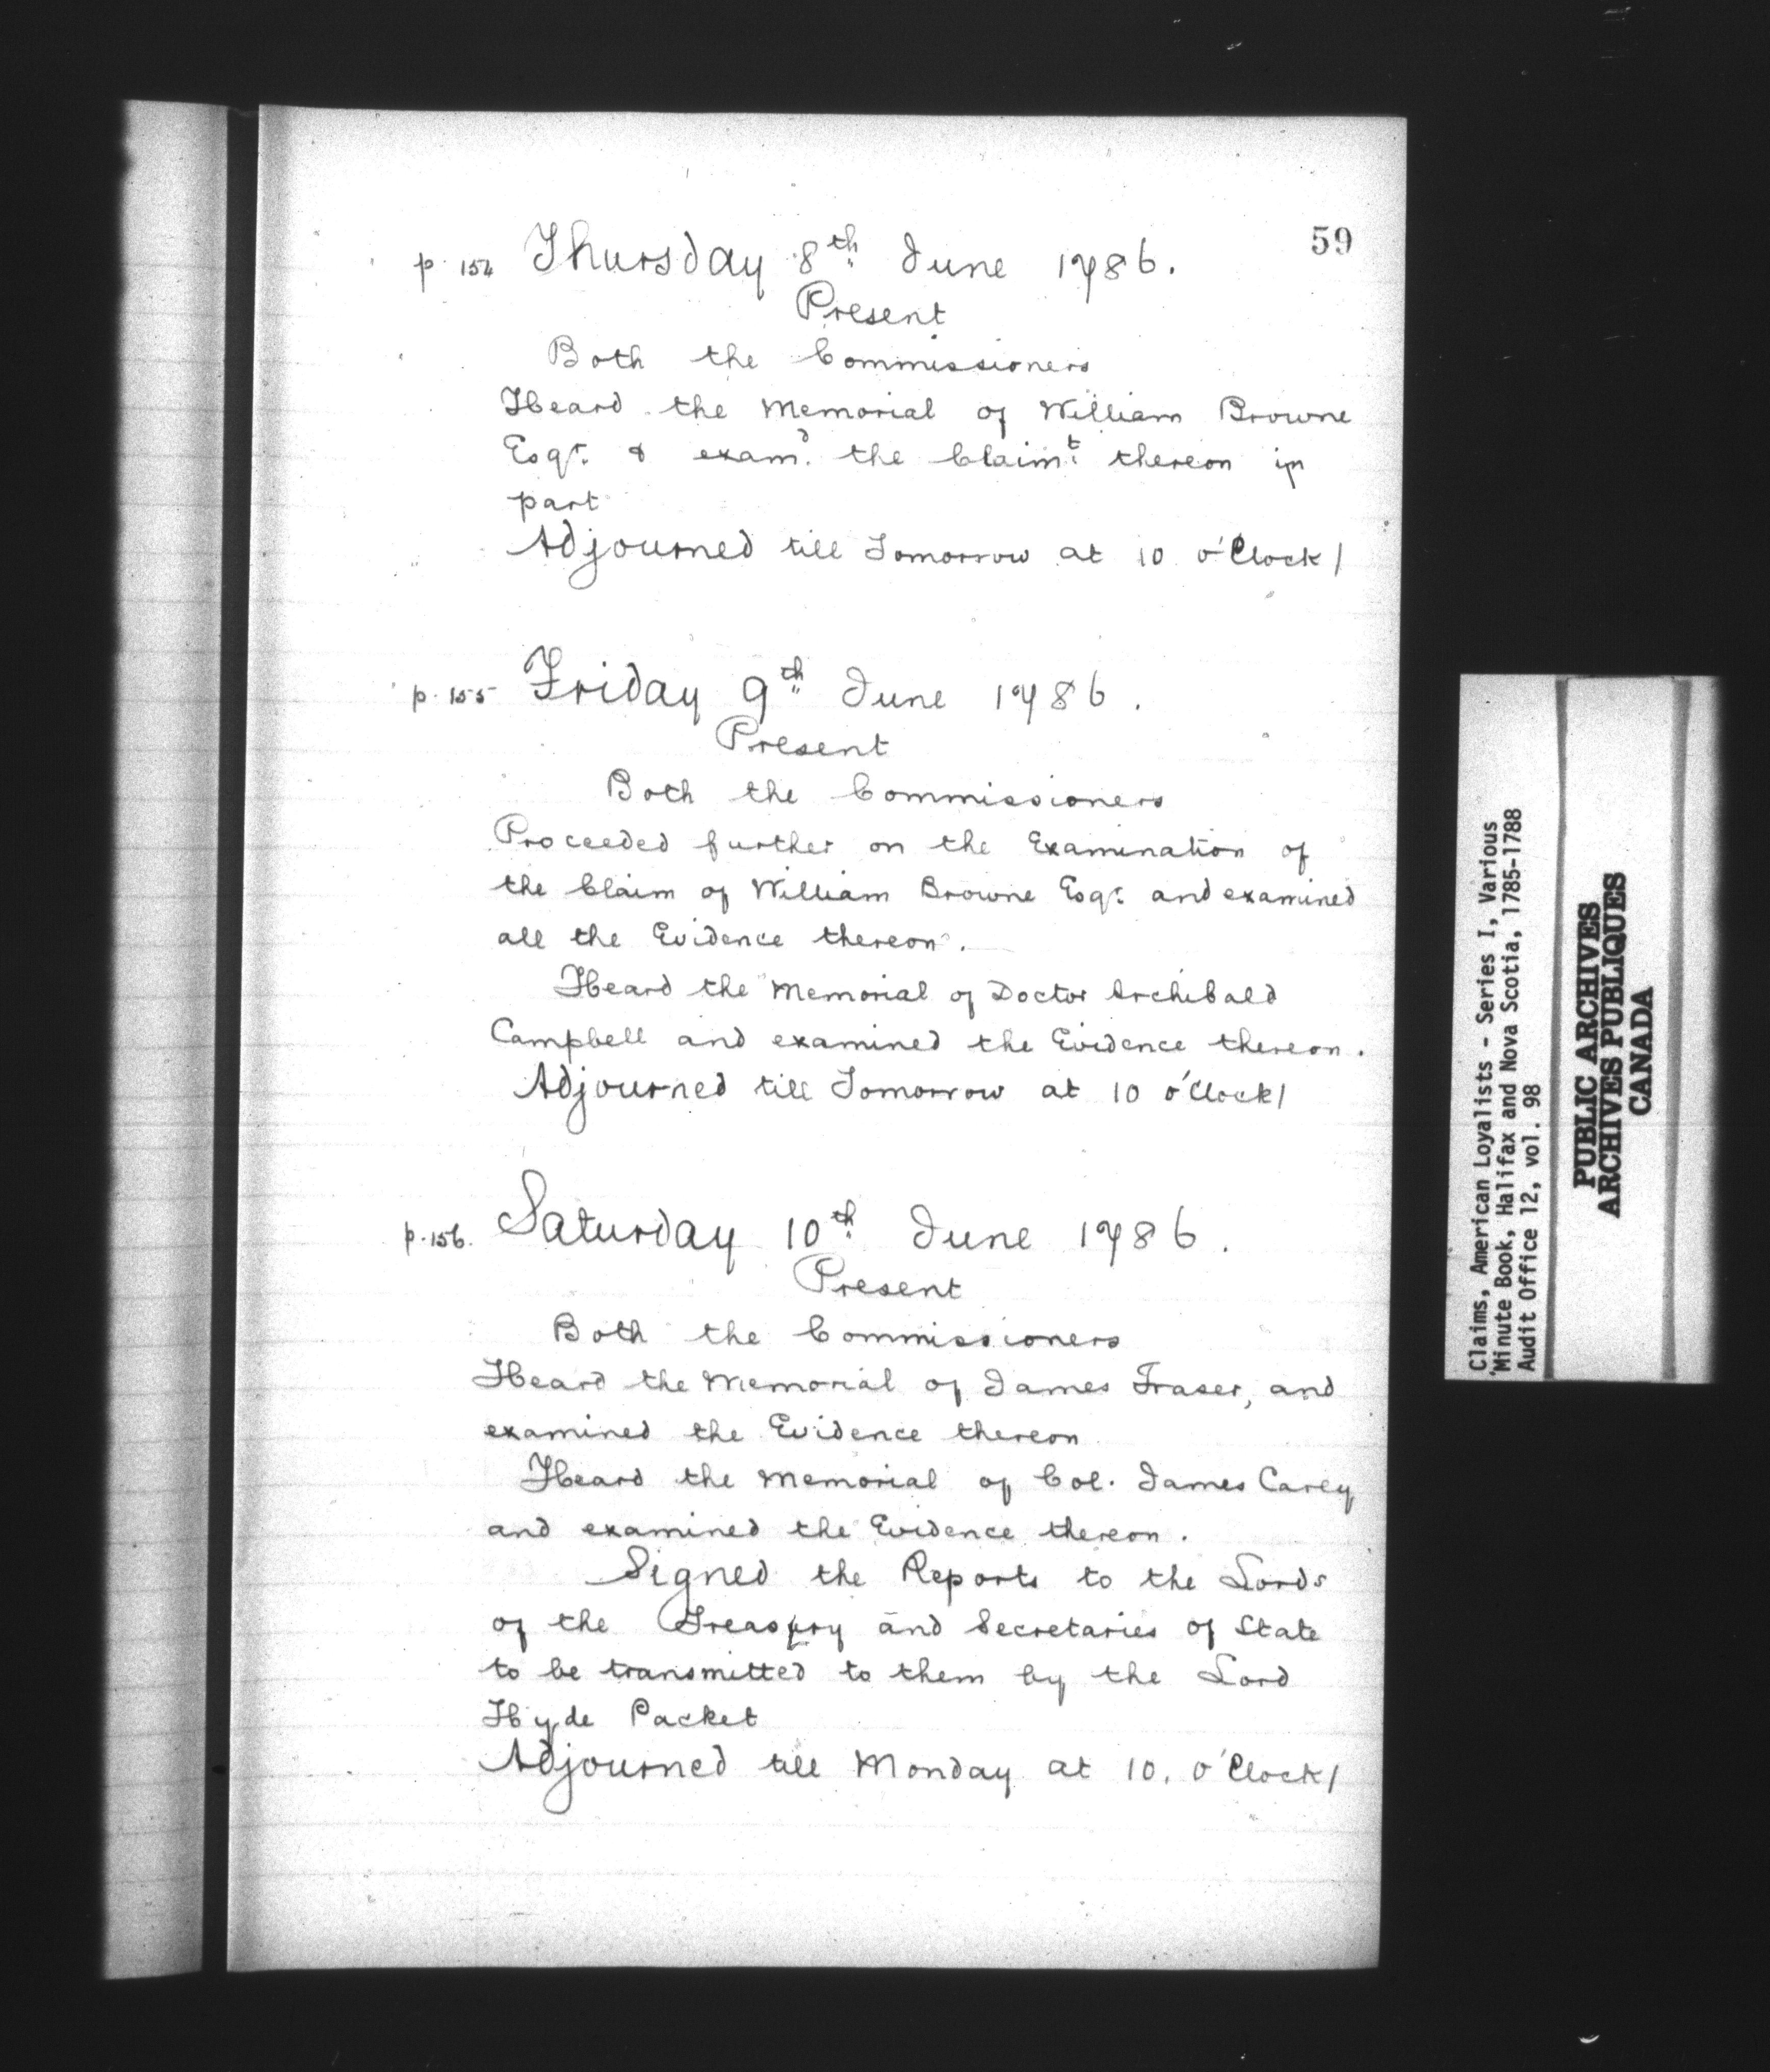 59
p. 154 Thursday 8th June 1786.
Present
Both the Commissioners
Heard the Memorial of William Browne
Esqr. & examd. the Claimt. thereon in
part
Adjourned till Tomorrow at 10 o'Clock/
p. 155 Friday 9th June 1786.
Present
Both the Commissioners
Proceeded further on the Examination of
the Claim of William Browne Esqr. and examined
all the Evidence thereon.
Heard the Memorial of Doctor Archibald
Campbell and examined the Evidence thereon.
Adjourned till Tomorrow at 10 o'Clock/
p. 156. Saturday 10th June 1786.
Present
Both the Commissioners
Heard the Memorial of James Fraser, and
examined the Evidence thereon
Heard the Memorial of Col. James Carey
and examined the Evidence thereon.
Signed the Reports to the Lords
of the Treasury and Secretaries of State
to be transmitted to them by the Lord
Hyde Packet
Adjourned till Monday at 10. o'Clock/
Claims, American Loyalists - Series I, Various
Minute Book, Halifax and Nova Scotia, 1785-1788
Audit Office 12, vol. 98
PUBLIC ARCHIVES
ARCHIVES PUBLIQUES
CANADA